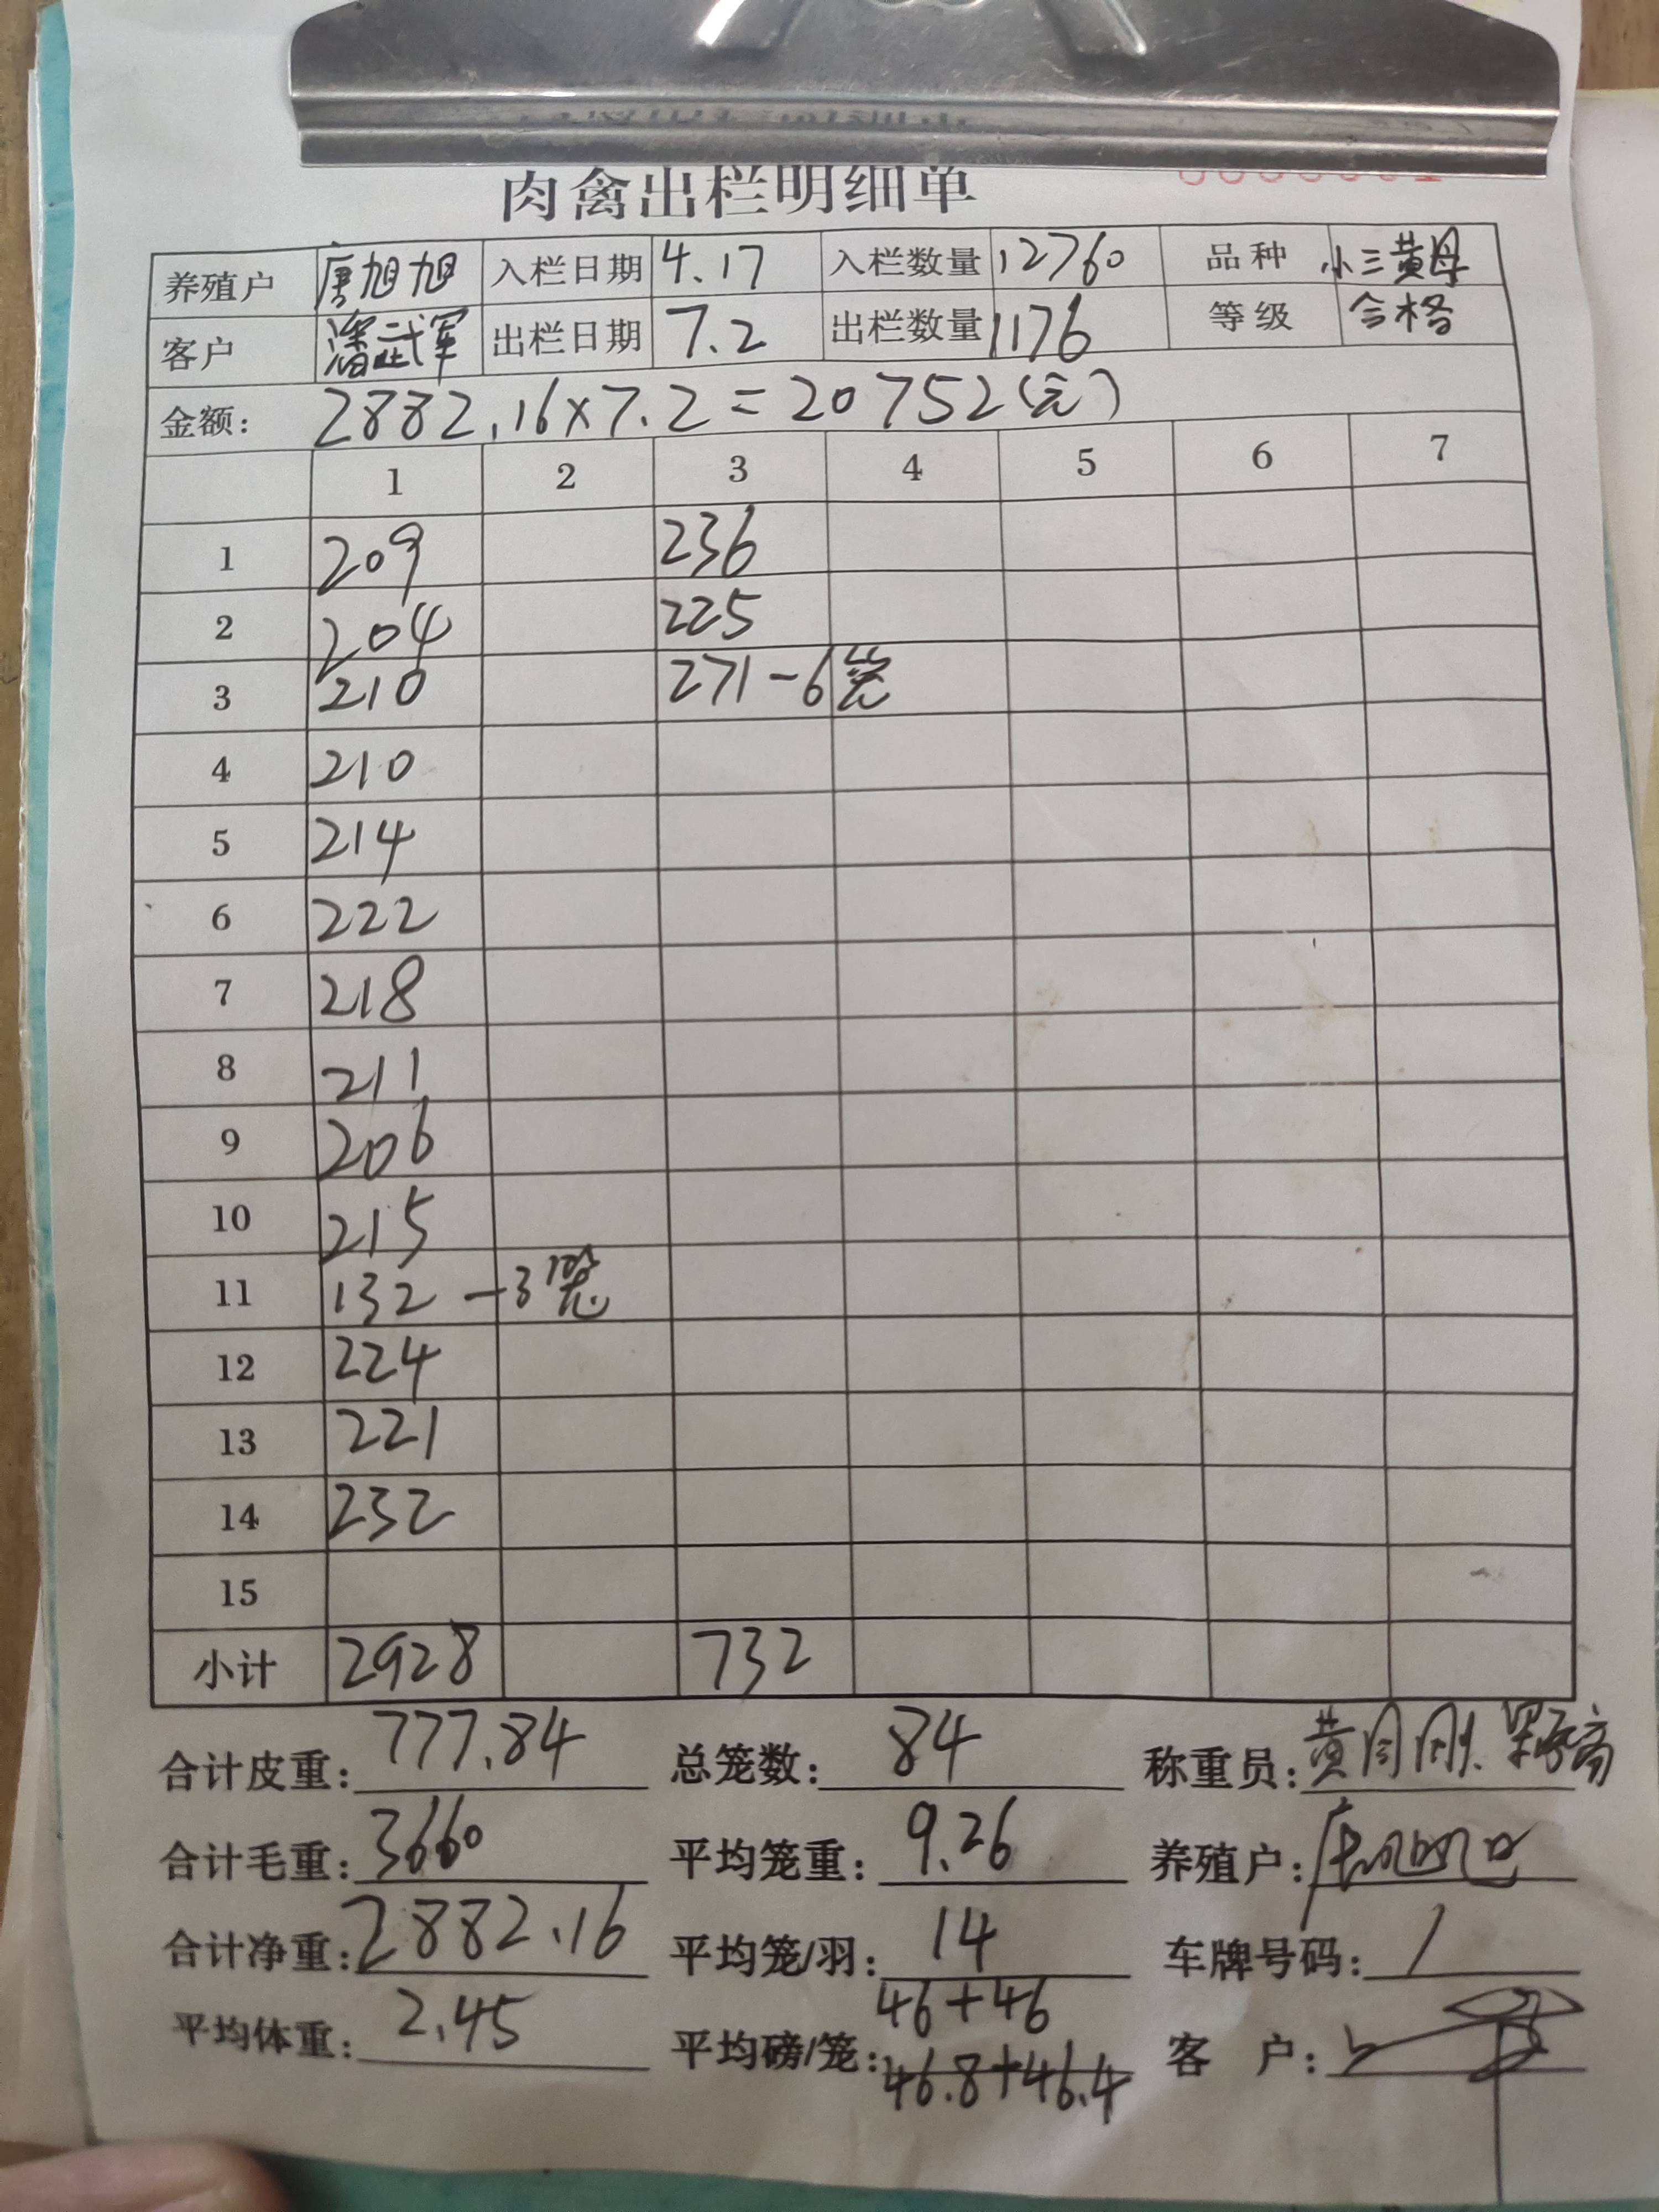 肉禽出栏明细单
养殖户 唐旭旭 入栏日期 4.17 入栏数量 12760 品种 小三黄母
客户 潘武军 出栏日期 7.2 出栏数量 1176 等级 合格
金额: 2882.16×7.2=20752(元)
1 2 3 4 5 6 7
1 209 236
2 204 225
3 210 271-6笼
4 210
5 214
6 222
7 218
8 211
9 206
10 215
11 132-3笼
12 224
13 221
14 232
15
小计 2928 732
合计皮重: 777.84 总笼数: 84 称重员: 黄月刚.
合计毛重: 3660 平均笼重: 9.26 养殖户: 唐旭旭
合计净重: 2882.16 平均笼/羽: 14 车牌号码: /
平均体重: 2.45 平均磅/笼: 46+46 客 户:
46.8+46.4